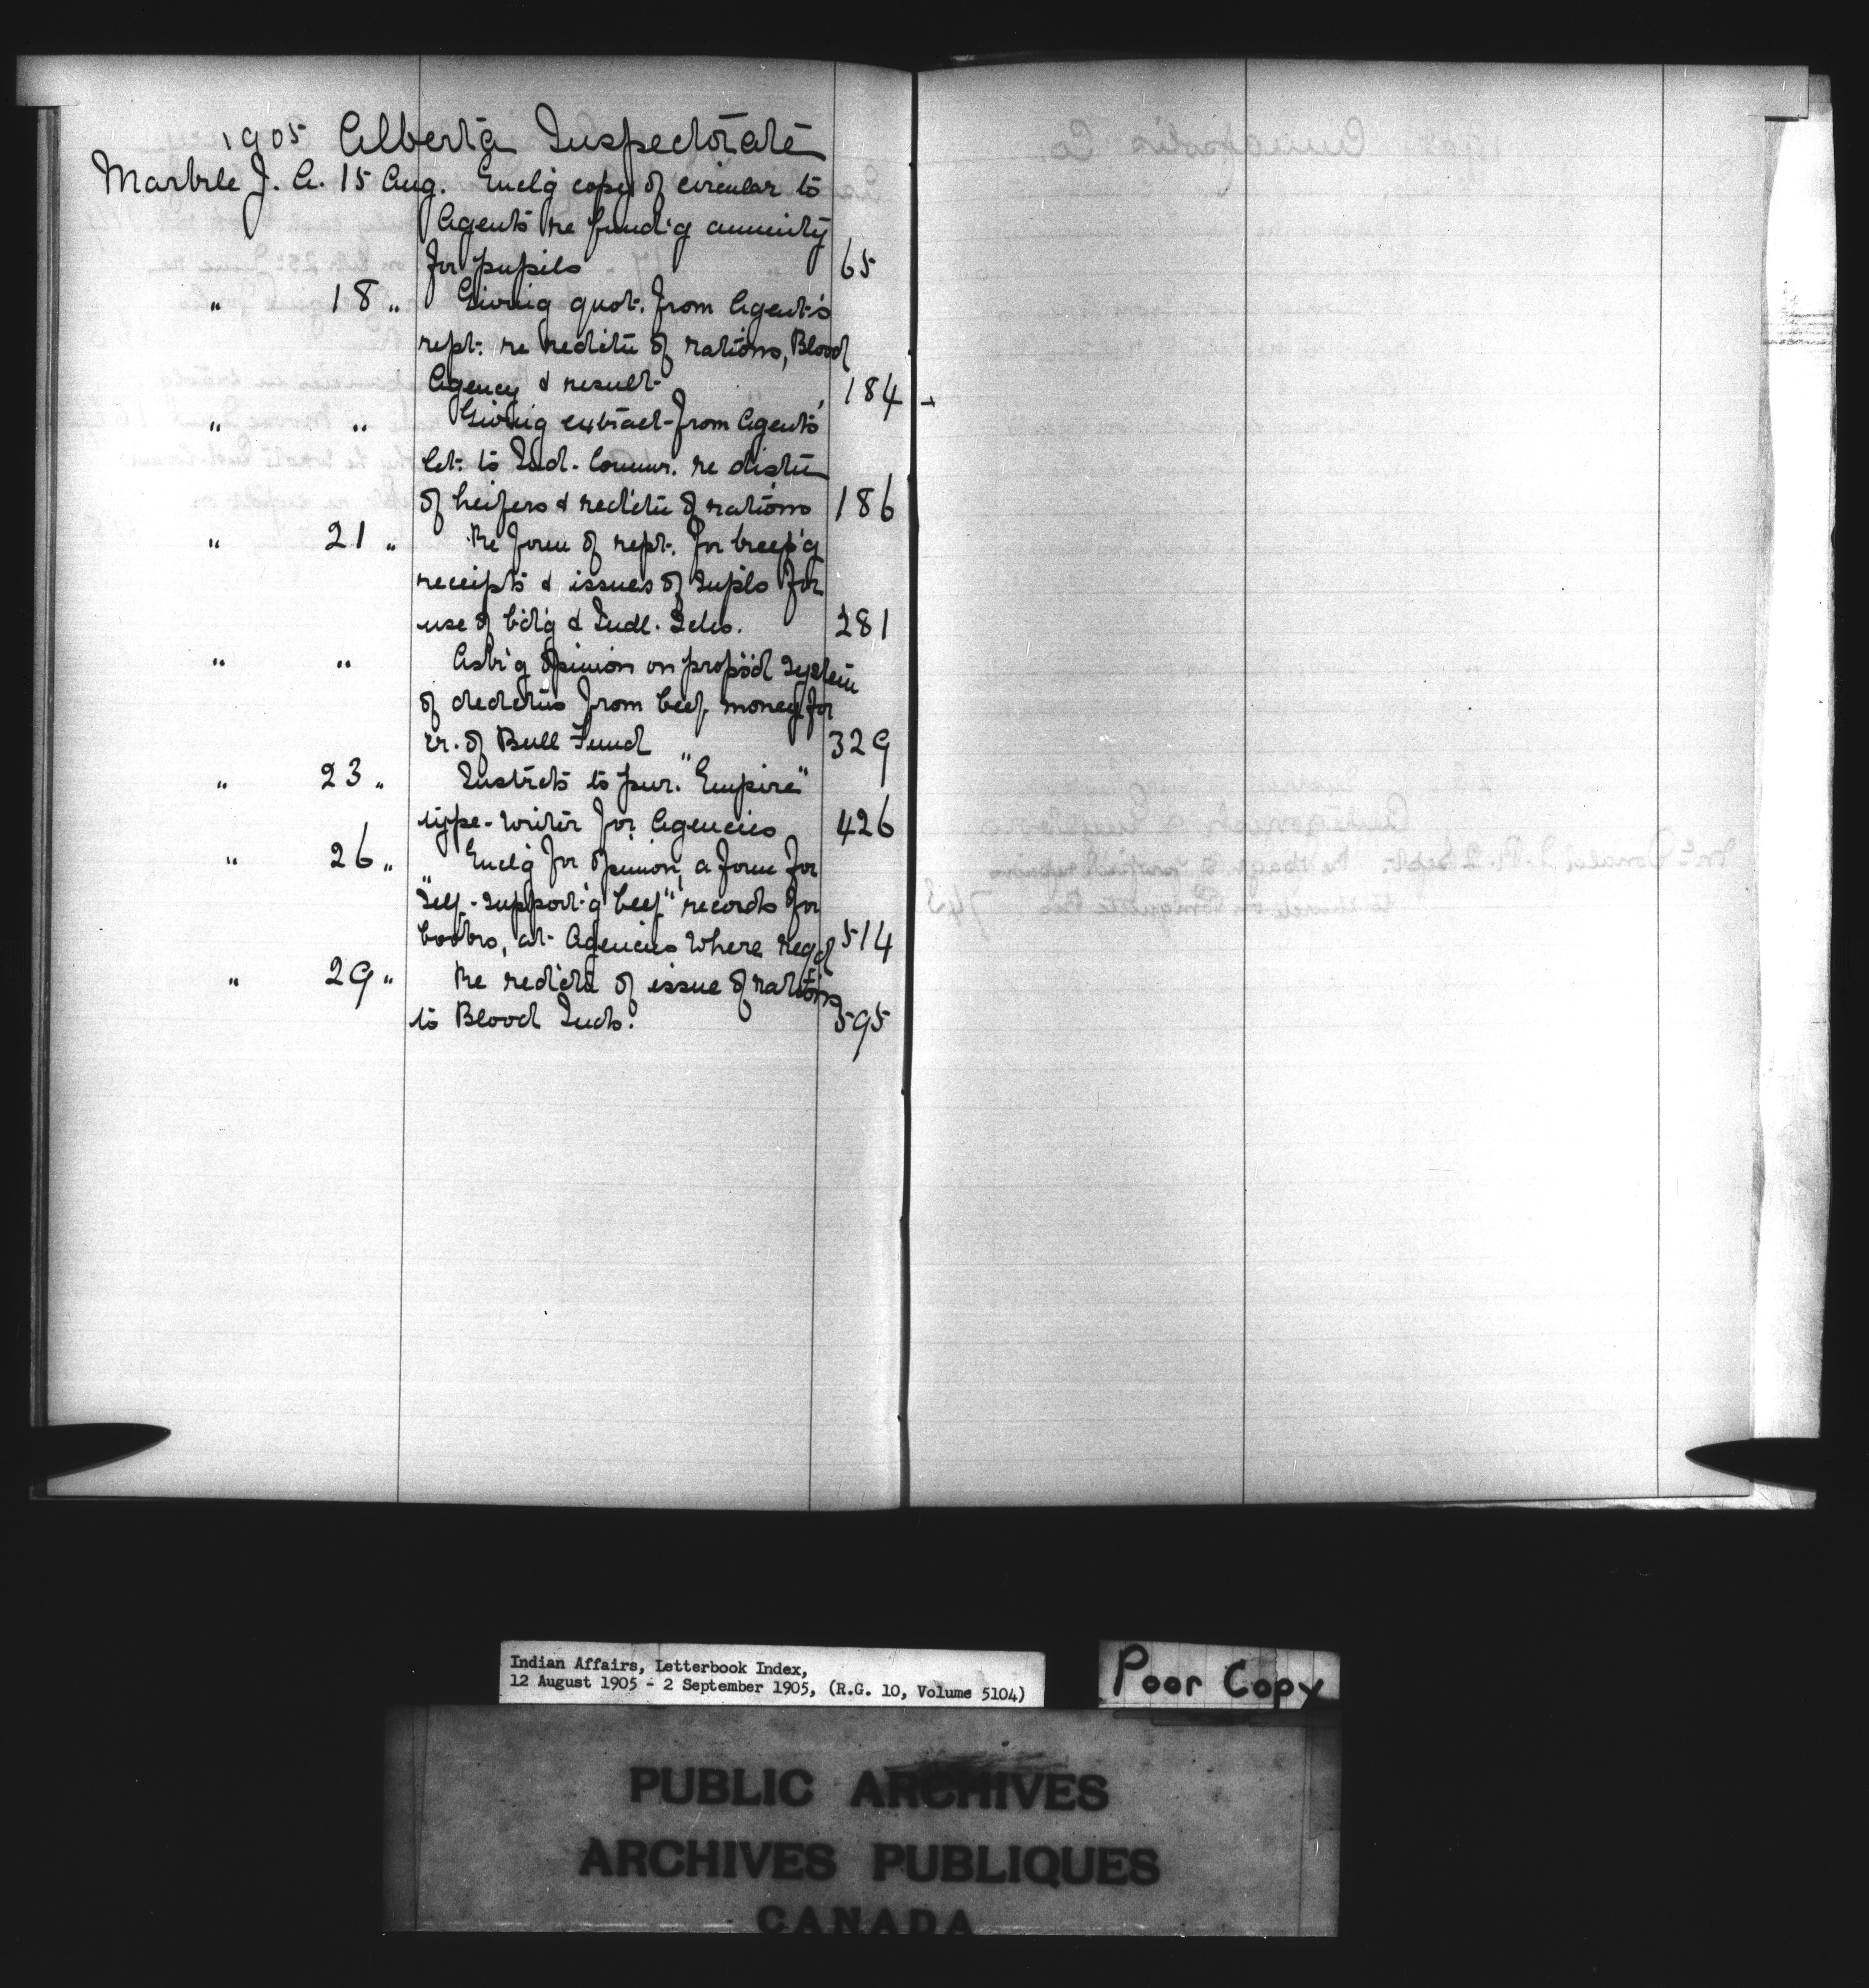 1905 Alberta Inspectorate
Markle J. A. 15 Aug. Encl'g copy of circular to
Agents re fund'g annuity
for pupils 65
" 18 " Giving quot. from Agent's
rept. re redctn of rations, Blood
Agency & result 184
" " Giving extract from Agent's
let. to Ind. Commr. re distn
of heifers & redctn of rations 186
" 21 " Re form of rept. for keep'g
receipts & issues of supls for
use of b'd'g & Indl. Schs. 281
" " Ask'g opinion on propos'd system
of dedctns from beef money for
cr. of Bull Fund 329
" 23 " Instrcts to pur. "Empire"
type-writer for Agencies 426
" 26 " Encl'g for opinion, a form for
"Self-support'g beef" records for
books, at Agencies where reqd 514
" 29 " Re redctn of issue of rations
to Blood Inds. 595
Indian Affairs, Letterbook Index,
12 August 1905 - 2 September 1905, (R.G. 10, Volume 5104)
Poor Copy
PUBLIC ARCHIVES
ARCHIVES PUBLIQUES
CANADA